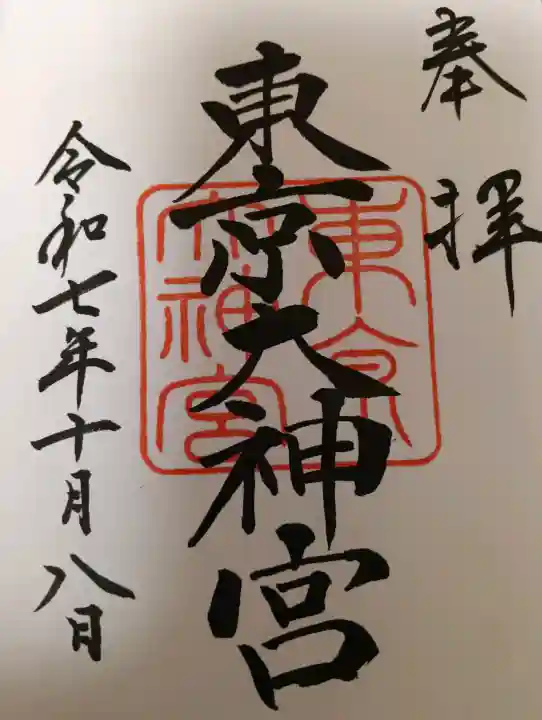 奉拝
東京大神宮
東京大神宮
令和七年十月八日